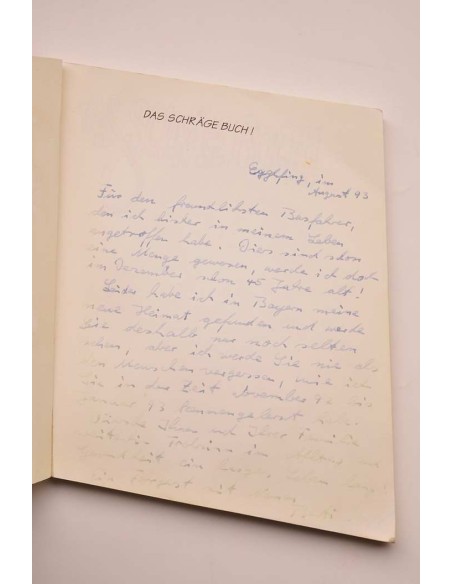 DAS SCHRÄGE BUCH!
Egglfing, im
August 93
Für den freundlichsten Busfahrer,
den ich bisher in meinem Leben
angetroffen habe. Dies sind schon
eine Menge gewesen, werde ich doch
im Dezember schon 45 Jahre alt!
Leider habe ich in Bayern meine
neue Heimat gefunden und werde
Sie deshalb nur noch selten
sehen, aber ich werde Sie nie als
den Menschen vergessen, wie ich
Sie in der Zeit November 92 bis
Januar 93 kennengelernt habe.
Wünsche Ihnen und Ihrer Familie
weiterhin
ein langes Leben lang!